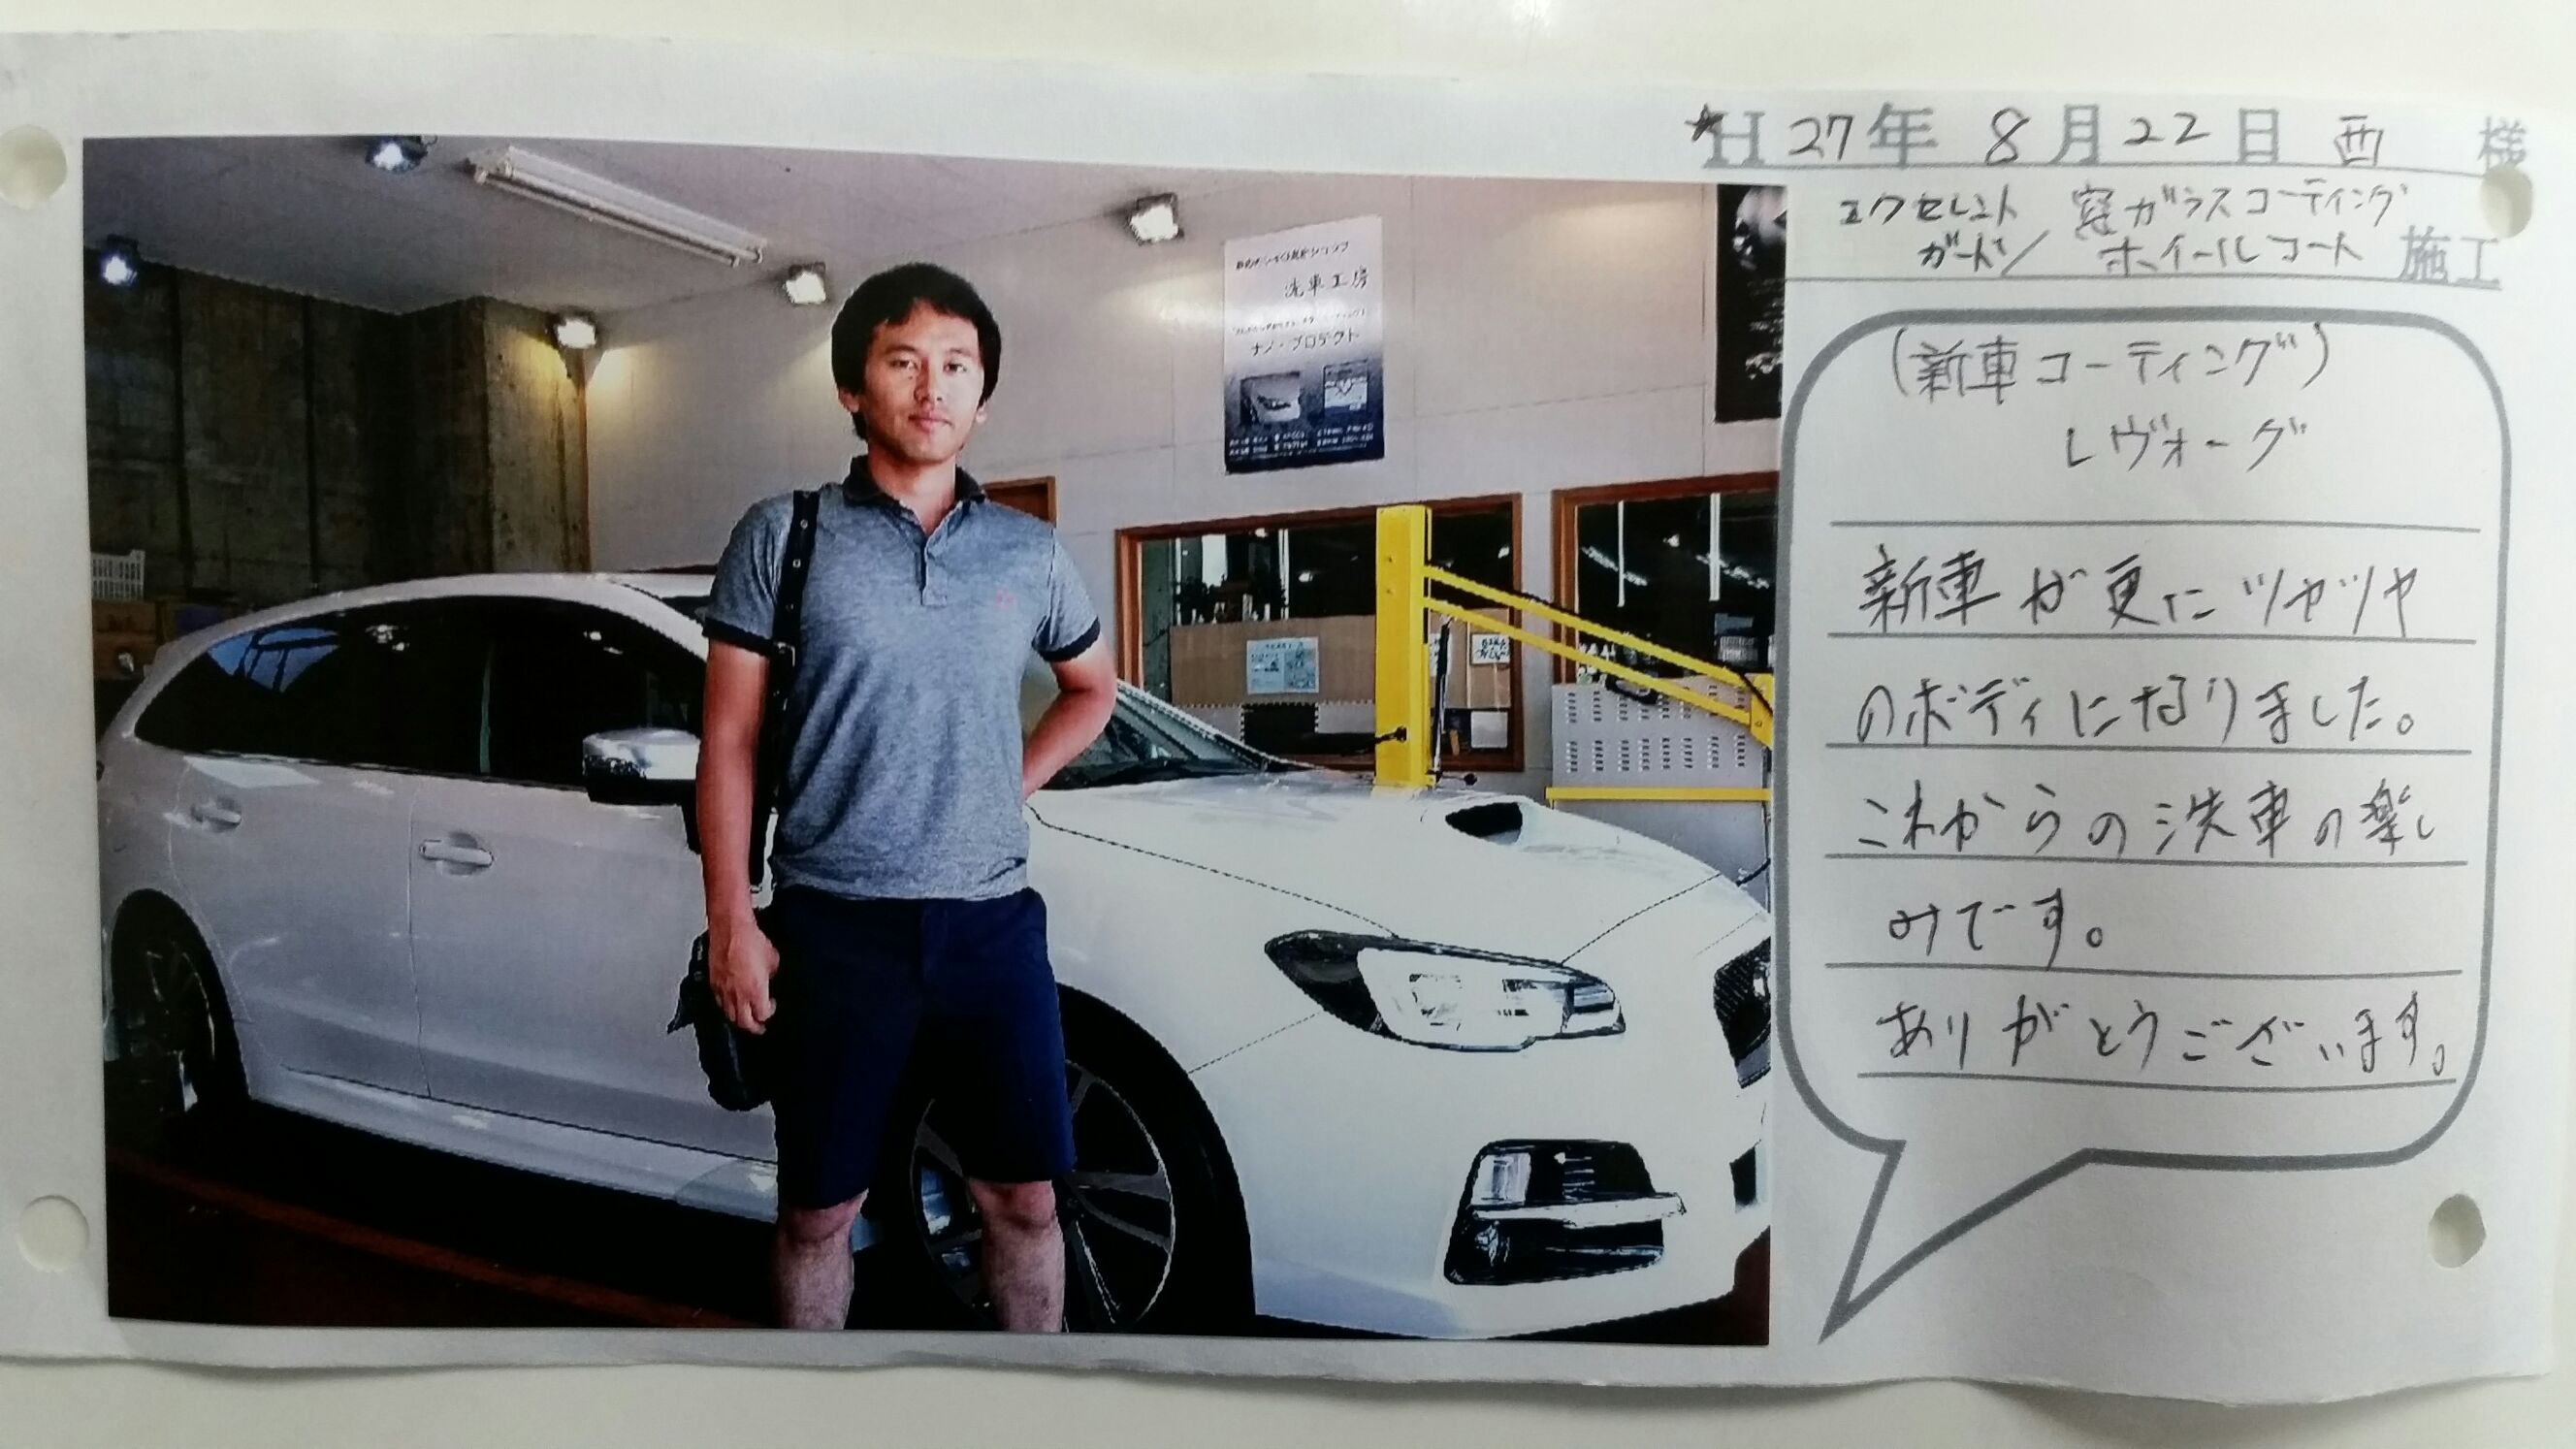 H27年 8月22日 西 様
エクセレント 窓ガラスコーティング
ガード/ ホイールコート 施工
(新車コーティング)
レヴォーグ
新車が更にツヤツヤ
のボディになりました。
これからの洗車の楽し
みです。
ありがとうございます。
洗車工房
ナノ・プロテクト